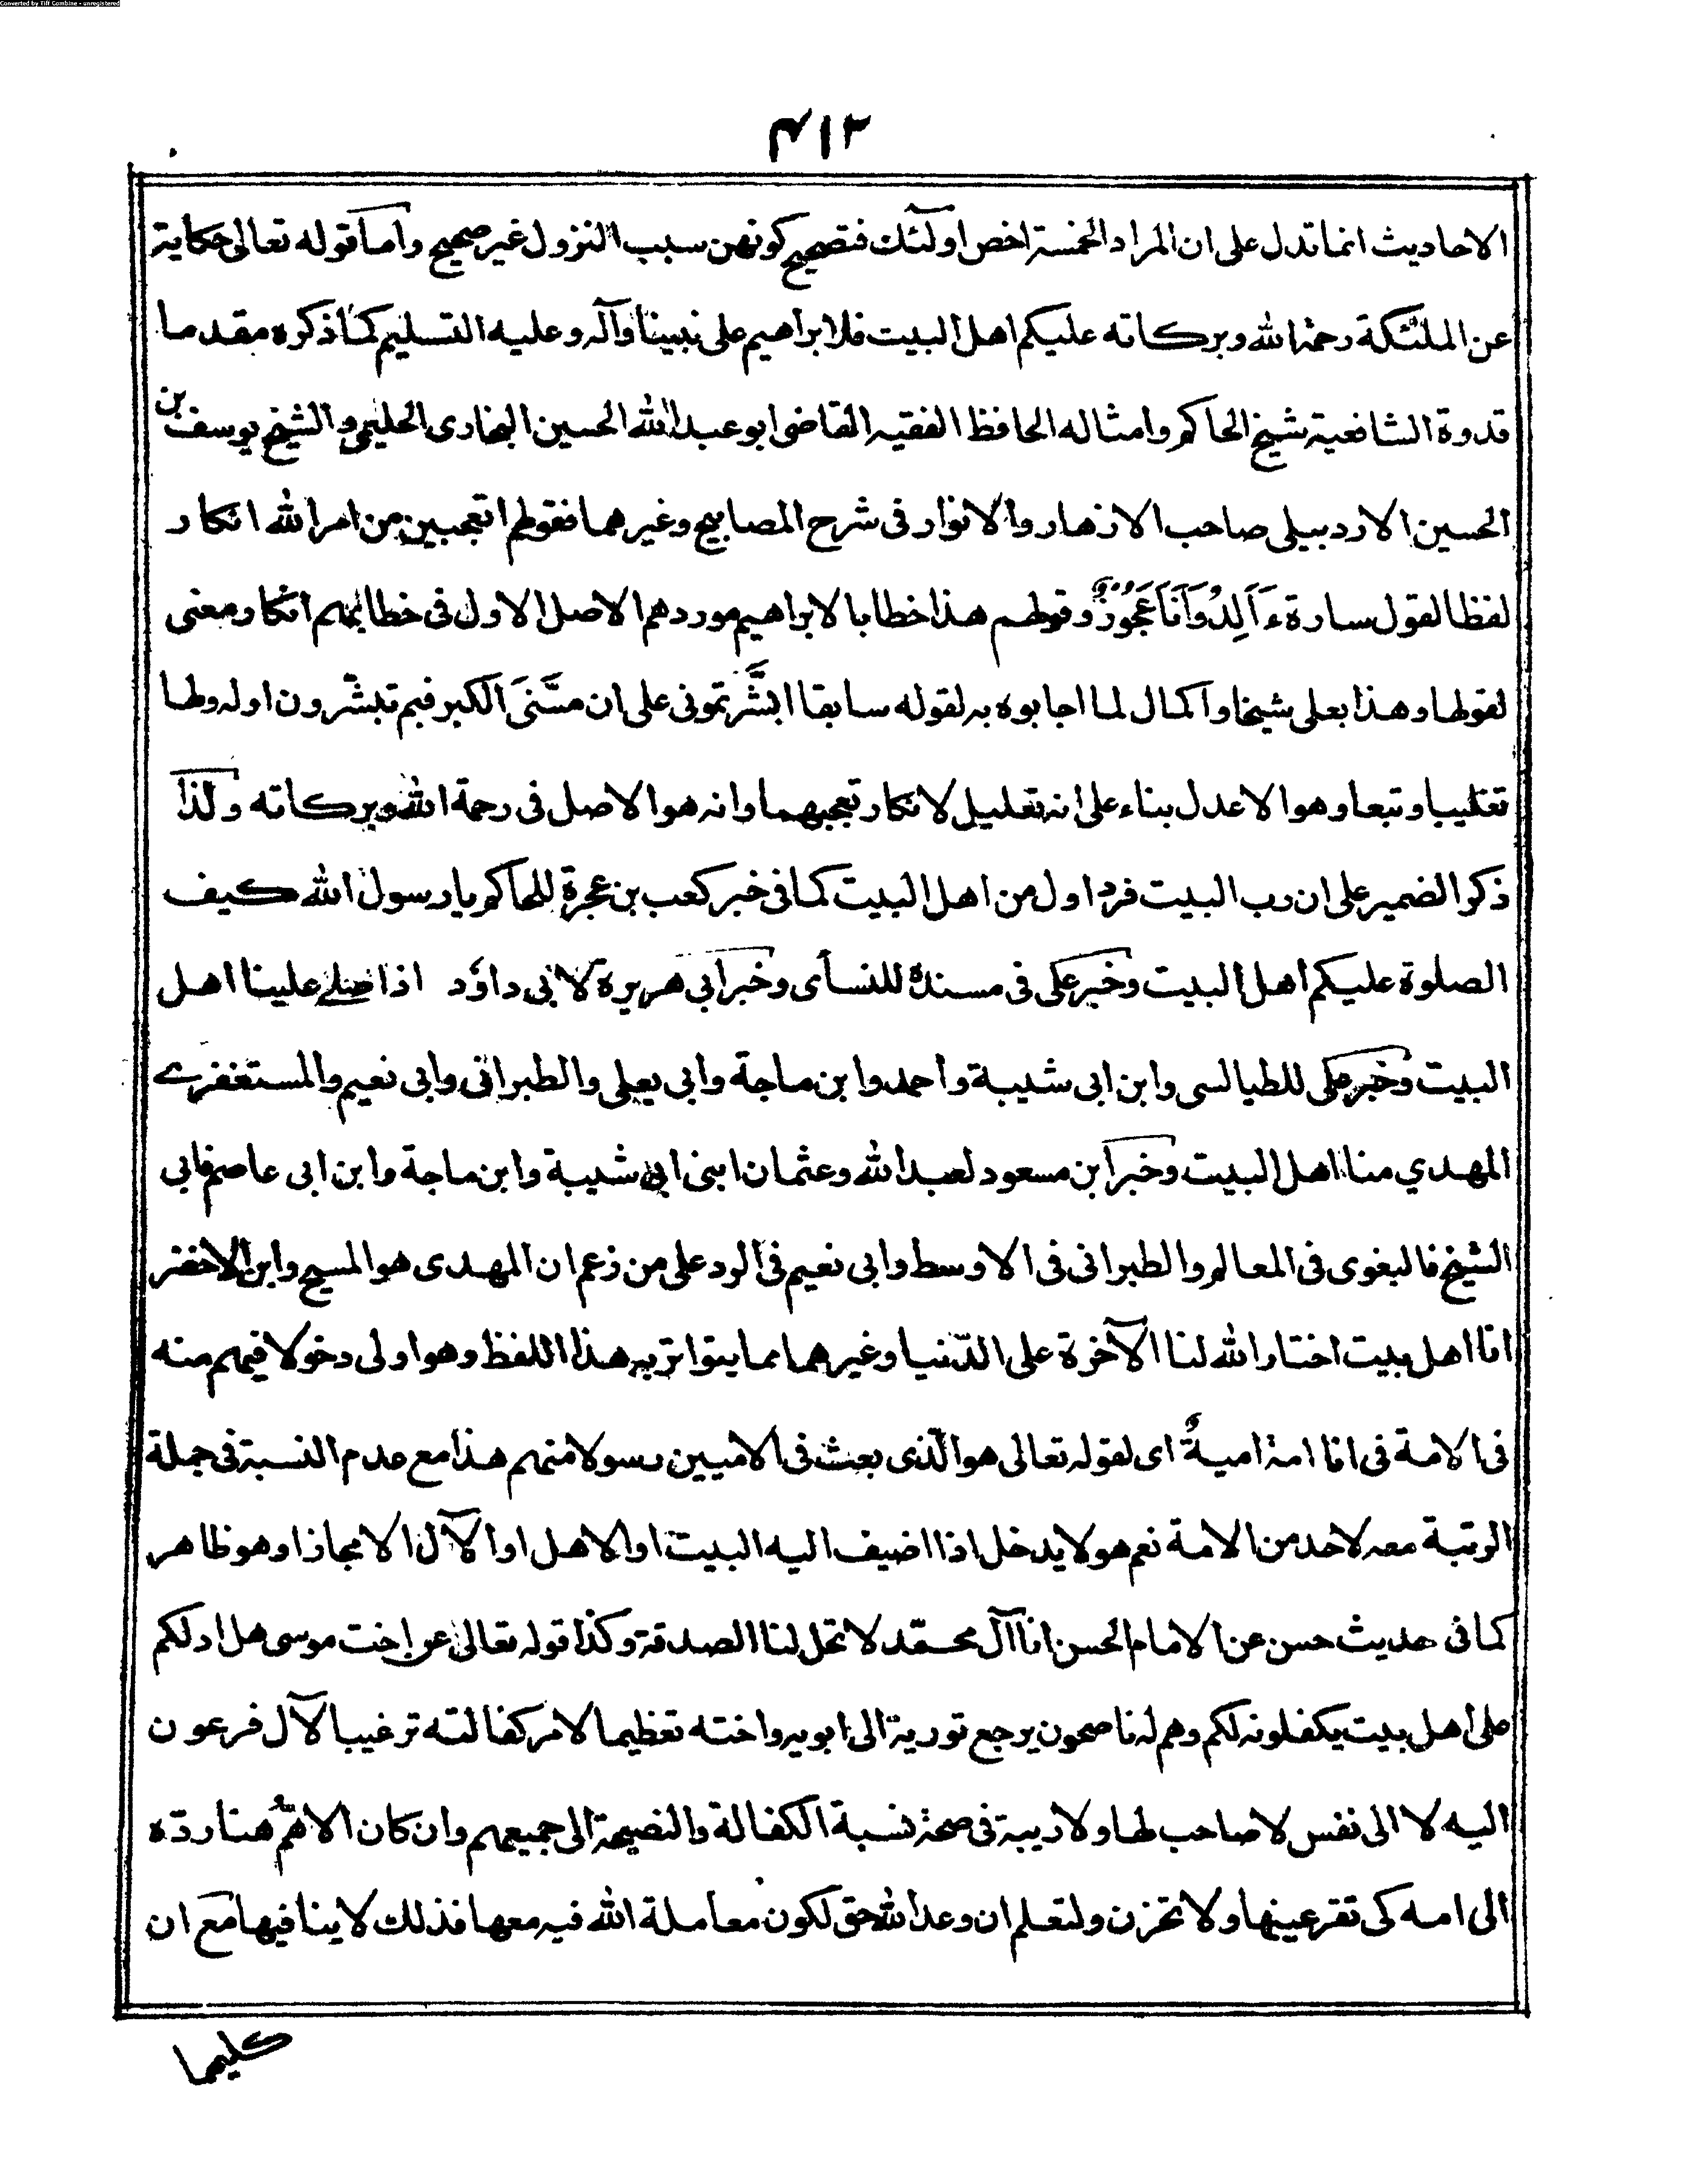 Converted by Tiff Combine - unregistered
۴۱۲
الاحاديث انما تدل على ان المراد الخمسة اخص اولئك فتصحيح كونهن سبب النزول غير صحيح واما قوله تعالى حكاية
عن الملئكة رحمة الله وبركاته عليكم اهل البيت فلابراهيم على نبينا وآله وعليه التسليم كما ذكره مقدما
قدوة الشافعية شيخ الحاكم وامثاله الحافظ الفقيه القاضى ابو عبد الله الحسين البخارى الحليمى والشيخ يوسف بن
الحسين الاردبيلى صاحب الازهار والانوار فى شرح المصابيح وغيرهما فقولهم اتعجبين من امر الله انكار
لفظا لقول سارة ءَاَلِدُ وَاَنَا عَجُوْزٌ وقولهم هذا خطابا لابراهيم موردهم الاصل الاول فى خطابهم انكار معنى
لقولها وهذا بعلى شيخا واكمال لما اجابوه به لقوله سابقا ابشَّرتمونى على ان مسَّنىَ الكبر فبم تبشّرون اوله ولها
تغليبا وتبعا وهو الاعدل بناء على انه تعليل لانكار تعجبهما وانه هو الاصل فى رحمة الله وبركاته ولذا
ذكر الضمير على ان رب البيت فرد اول من اهل البيت كما فى خبر كعب بن عجرة للحاكم يا رسول الله كيف
الصلوة عليكم اهل البيت وخبر على فى مسنده للنسأى وخبر ابى هريرة لابى داؤد اذا صلے علينا اهل
البيت وخبر على للطيالسى وابن ابى شيبة واحمد وابن ماجة وابى يعلى والطبرانى وابى نعيم والمستغفرے
المهدي منا اهل البيت وخبر ابن مسعود لعبد الله وعثمان ابنى ابى شيبة وابن ماجة وابن ابى عاصم فابى
الشيخ فالبغوى فى المعالم والطبرانى فى الاوسط وابى نعيم فى الرد على من زعم ان المهدى هو المسيح وابن الاخضر
انا اهل بيت اختار الله لنا الآخرة على الدّنيا وغيرهما مما يتواتر به هذا اللفظ وهو اولى دخولا فيهم منه
فى الامة فى انا امة اميةٌ اى لقوله تعالى هو الّذى بعث فى الاميين رسولا منهم هذا مع عدم النسبة فى جملة
الرتبة معه لاحد من الامة نعم هو لا يدخل اذا اضيف اليه البيت او الاهل او الآل الا مجازا وهو ظاهر
كما فى حديث حسن عن الامام الحسن انا آل محمّد لا تحل لنا الصدقة وكذا قوله تعالى عن اخت موسى هل ادلكم
على اهل بيت يكفلونه لكم وهم له ناصحون يرجع تورية الى ابويه واخته تعظيما لامر كفالته ترغيبا لآل فرعون
اليه لا الى نفس لا صاحب لها ولا ريبة فى صحة نسبة الكفالة والنصيحة الى جميعهم وان كان الاهمُّ هنا ردّه
الى امه كى تقر عينها ولا تحزن ولتعلم ان وعد الله حق لكون معاملة الله فيه معها فذلك لا ينا فيها مع ان
كليهما